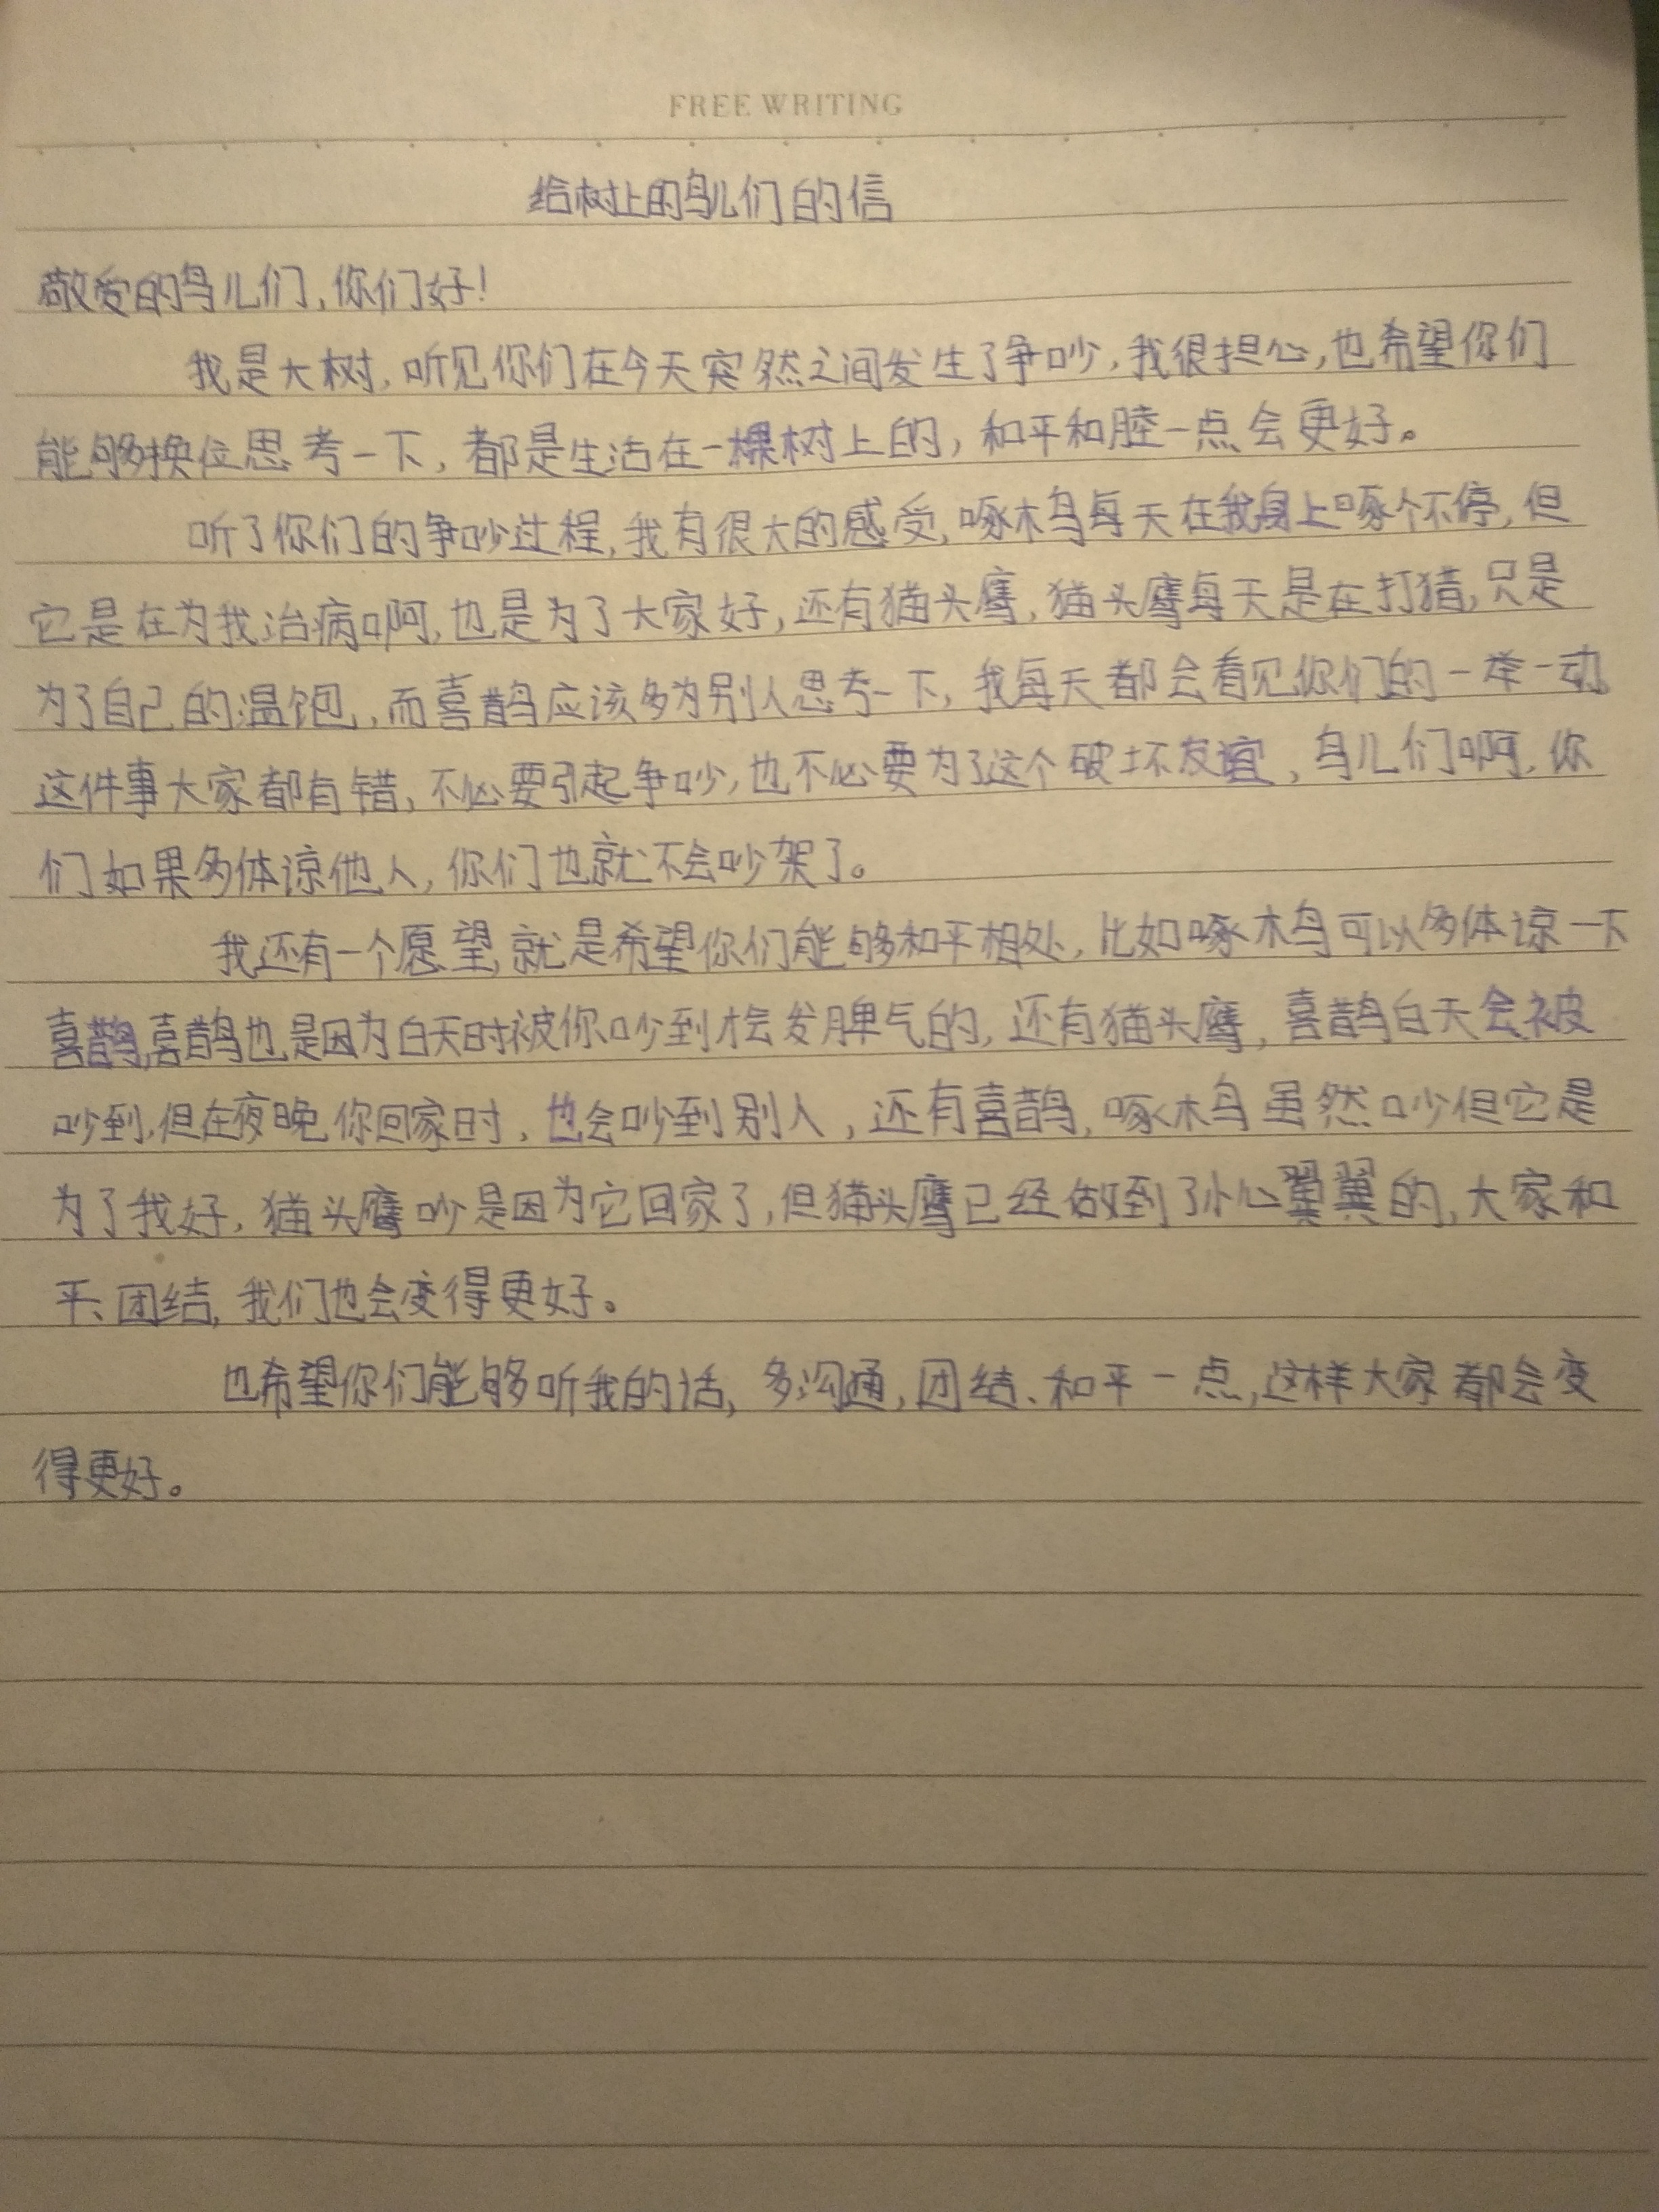 FREE WRITING
给树上的鸟儿们的信
敬爱的鸟儿们,你们好!
我是大树,听见你们在今天突然之间发生了争吵,我很担心,也希望你们
能够换位思考一下,都是生活在一棵树上的,和平和睦一点会更好。
听了你们的争吵过程,我有很大的感受,啄木鸟每天在我身上啄个不停,但
它是在为我治病啊,也是为了大家好,还有猫头鹰,猫头鹰每天是在打猎,只是
为了自己的温饱,而喜鹊应该多为别人思考一下,我每天都会看见你们的一举一动,
这件事大家都有错,不必要引起争吵,也不必要为了这个破坏友谊,鸟儿们啊,你
们如果多体谅他人,你们也就不会吵架了。
我还有一个愿望,就是希望你们能够和平相处,比如啄木鸟可以多体谅一下
喜鹊,喜鹊也是因为白天时被你吵到才会发脾气的,还有猫头鹰,喜鹊白天会被
吵到,但在夜晚你回家时,也会吵到别人,还有喜鹊,啄木鸟虽然吵但它是
为了我好,猫头鹰吵是因为它回家了,但猫头鹰已经做到了小心翼翼的,大家和
平、团结,我们也会变得更好。
也希望你们能够听我的话,多沟通,团结、和平一点,这样大家都会变
得更好。